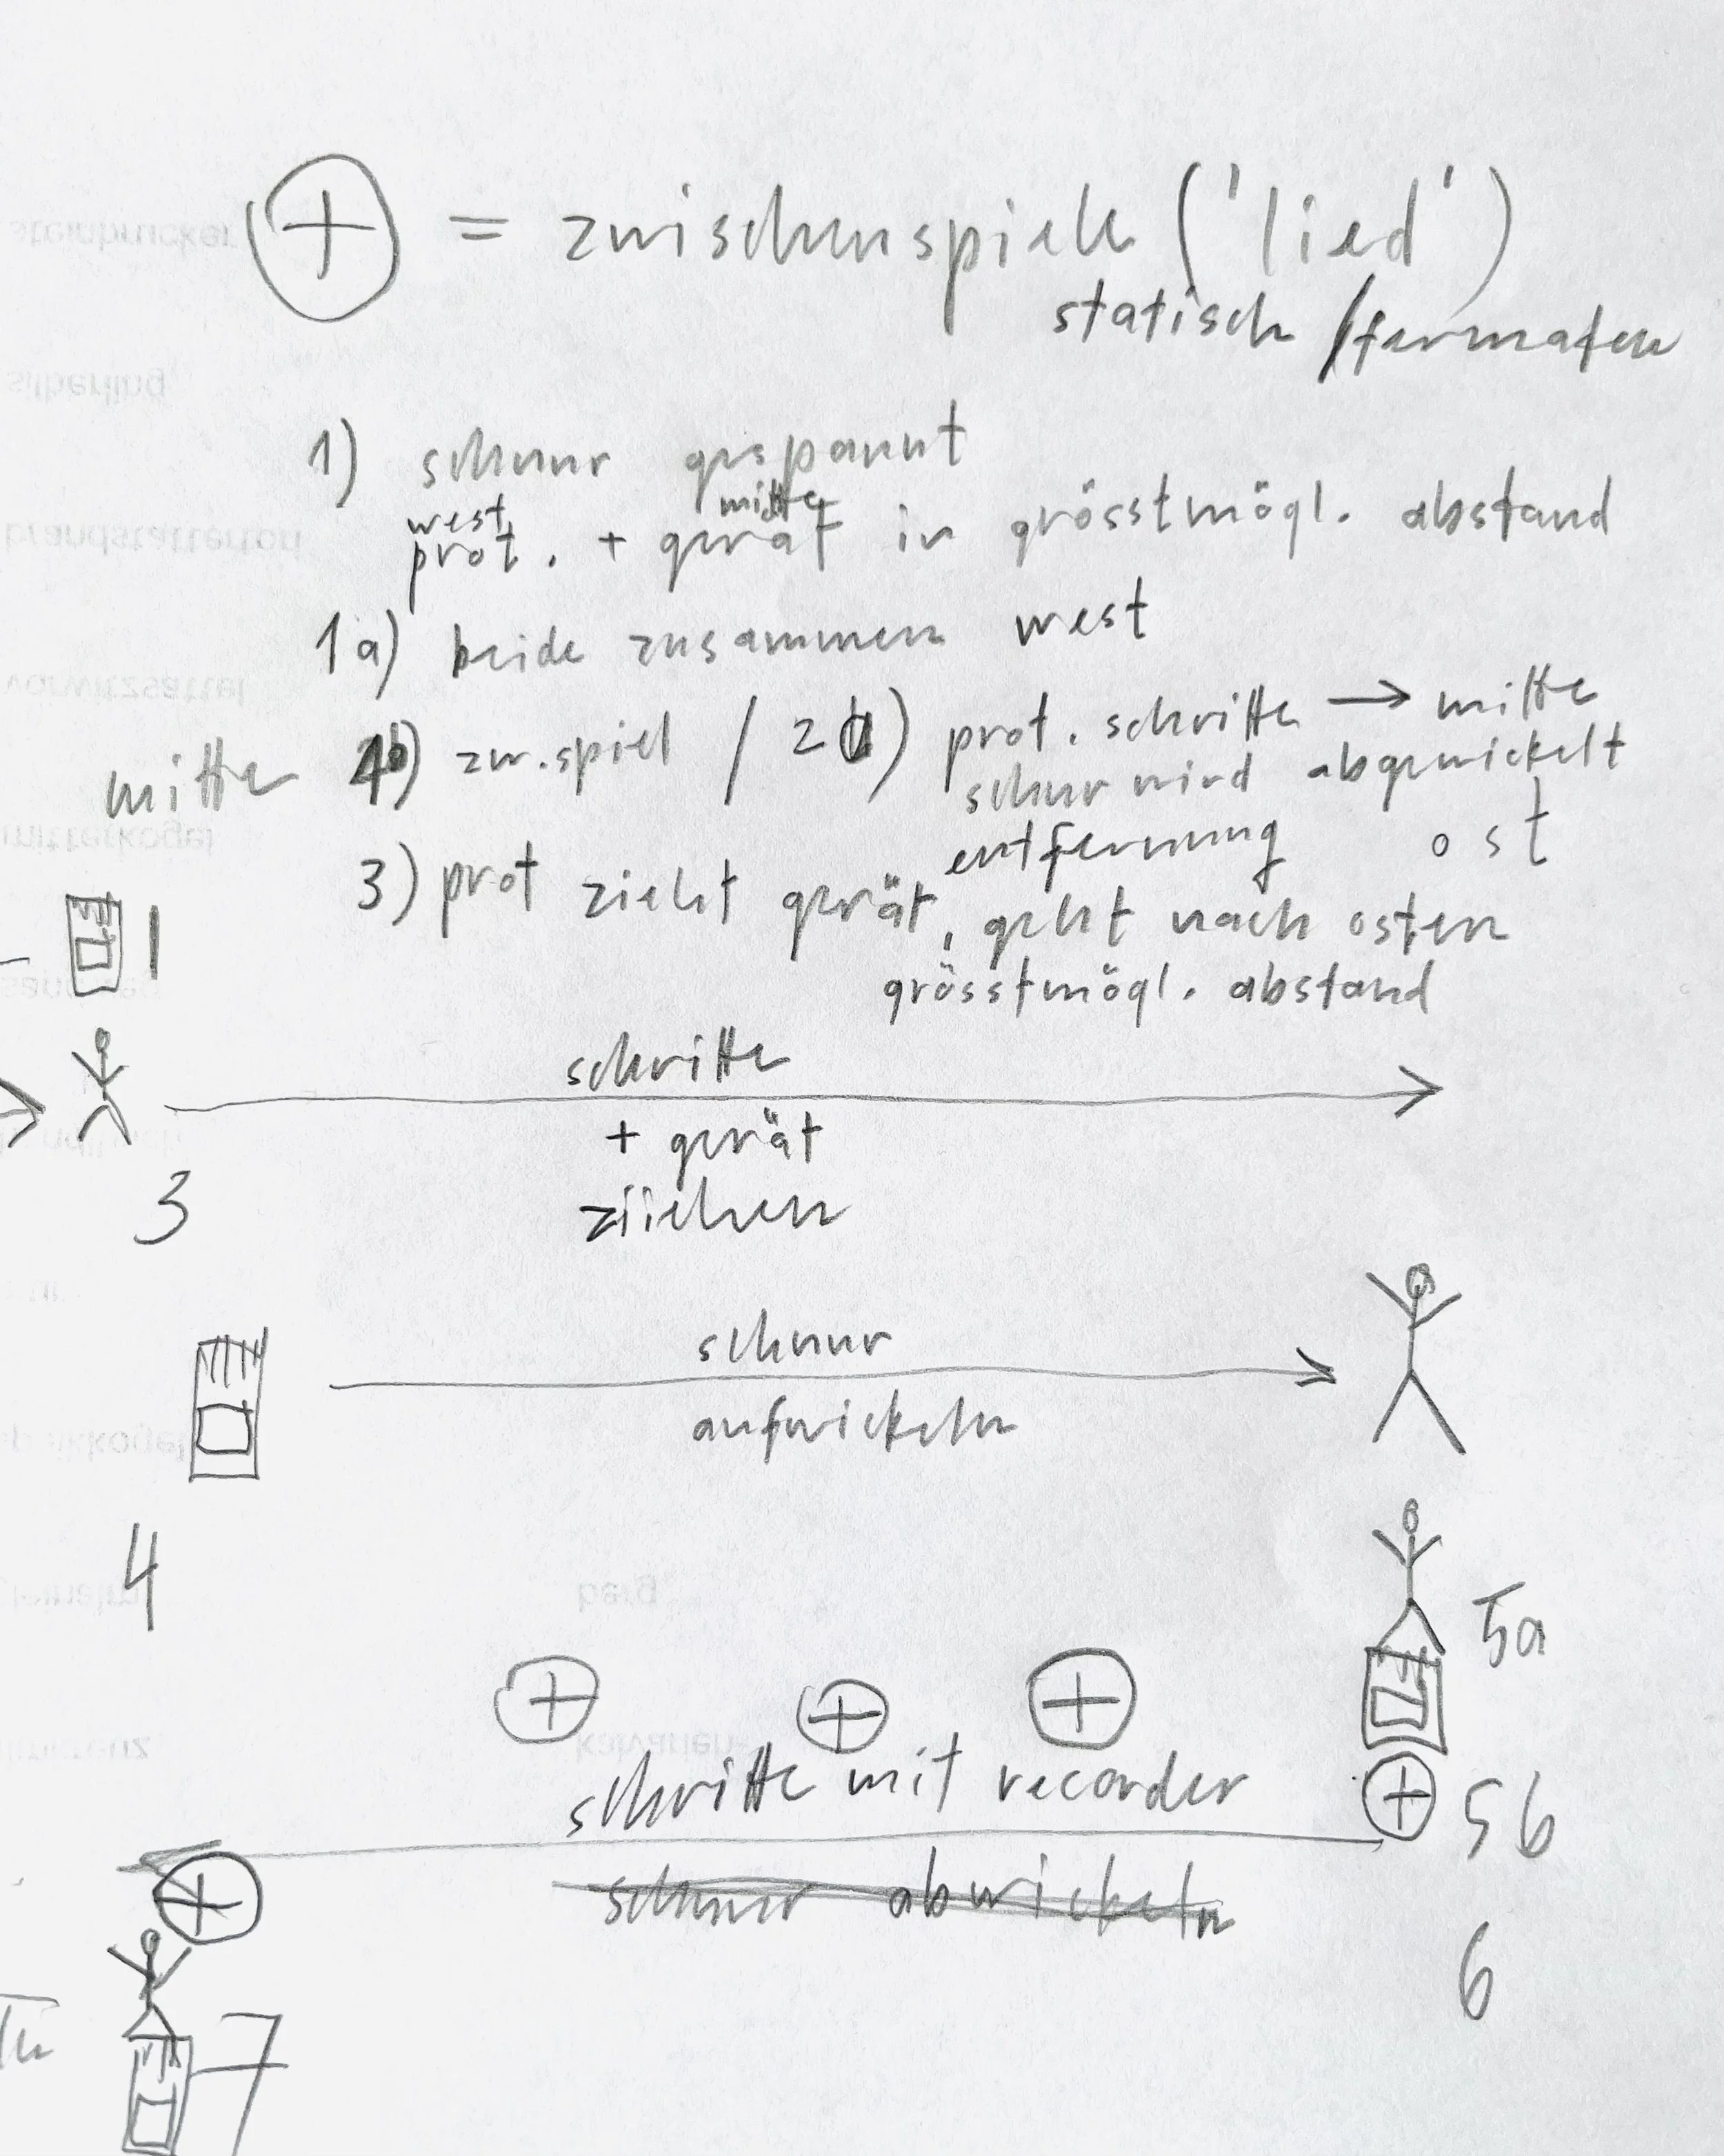 + = zwischenspiele ('lied')
statisch / fermaten
1) schnur gespannt
west mitte
prot. + gerät in grösstmögl. abstand
1a) beide zusammen west
mitte zw.spiel / prot. schritte → mitte
schnur wird abgewickelt
entfernung ost
3) prot zieht gerät, geht nach osten
grösstmögl. abstand
1
schritte
+ gerät
ziiehen
3
schnur
aufwickeln
4
5a
+ + +
schritte mit recorder
+ 5b
+
schnur abwickeln
6
7